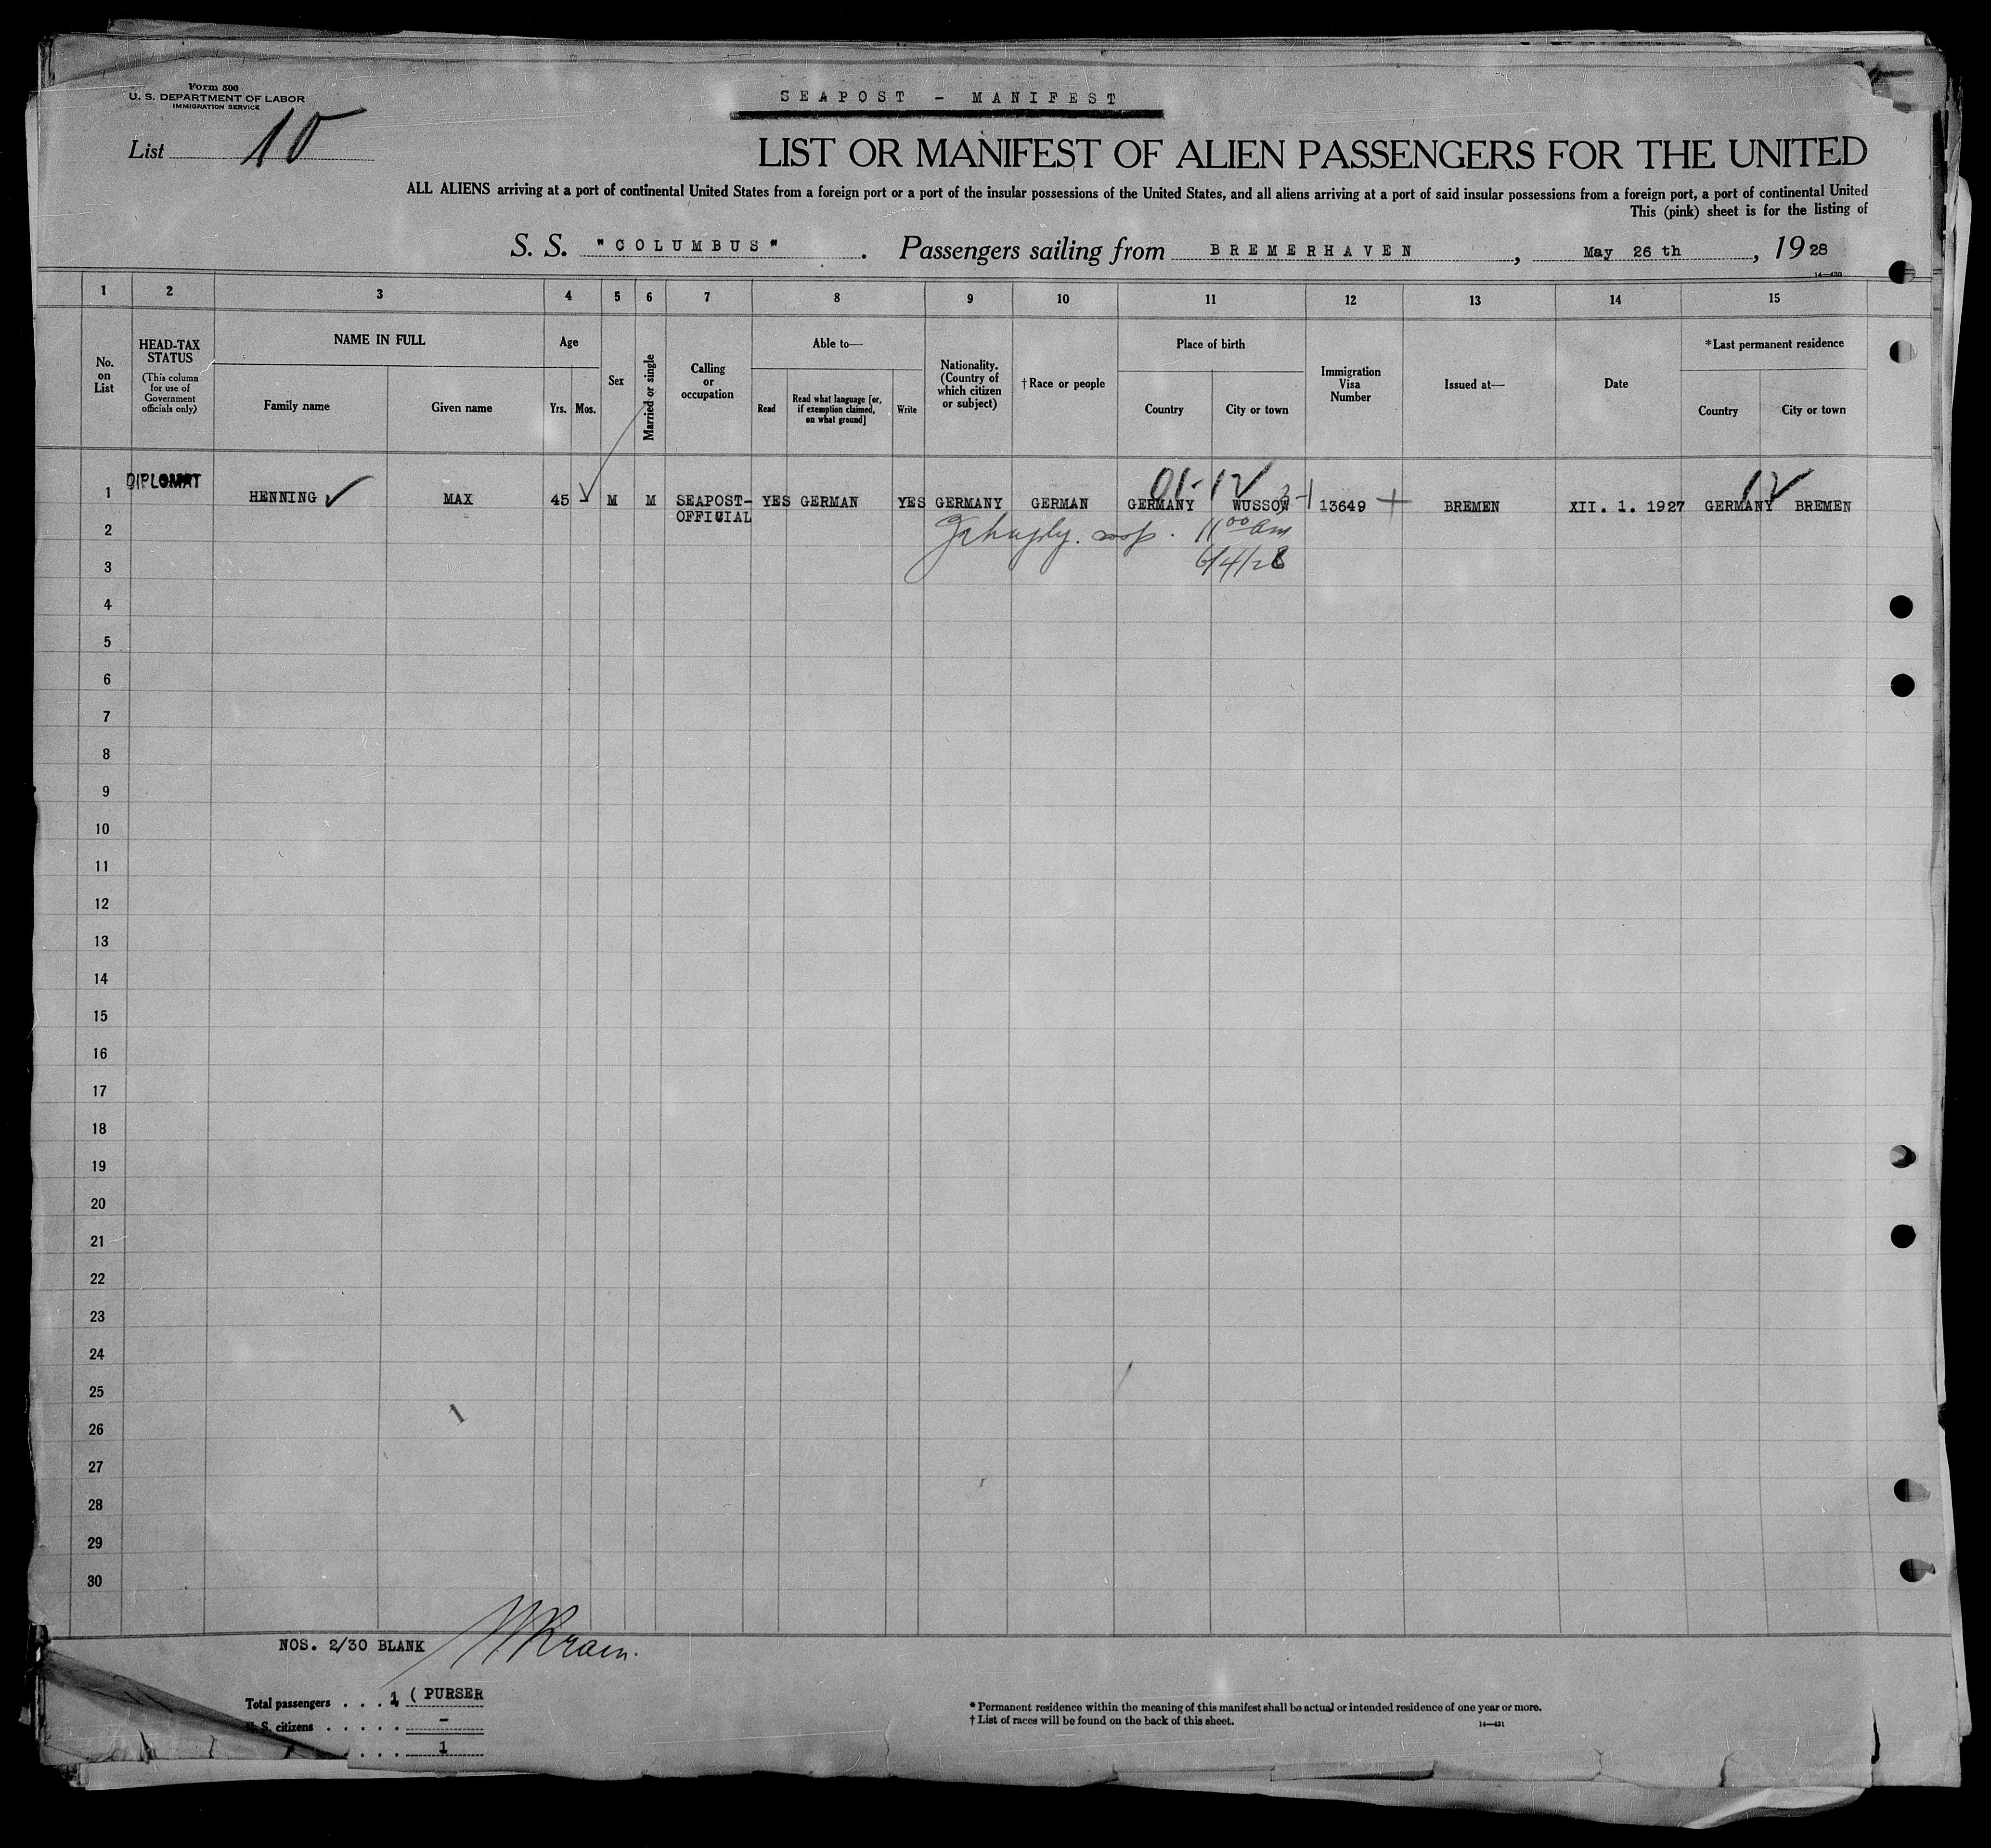 Form 500
U. S. DEPARTMENT OF LABOR
IMMIGRATION SERVICE
SEAPOST - MANIFEST
List 10
LIST OR MANIFEST OF ALIEN PASSENGERS FOR THE UNITED
ALL ALIENS arriving at a port of continental United States from a foreign port or a port of the insular possessions of the United States, and all aliens arriving at a port of said insular possessions from a foreign port, a port of continental United
This (pink) sheet is for the listing of
S. S. "COLUMBUS". Passengers sailing from BREMERHAVEN, May 26 th, 1928
14—430
1 2 3 4 5 6 7 8 9 10 11 12 13 14 15
No. on List
HEAD-TAX STATUS
(This column for use of Government officials only)
NAME IN FULL
Family name
Given name
Age
Yrs. Mos.
Sex
Married or single
Calling or occupation
Able to—
Read
Read what language [or, if exemption claimed, on what ground]
Write
Nationality. (Country of which citizen or subject)
†Race or people
Place of birth
Country
City or town
Immigration Visa Number
Issued at—
Date
*Last permanent residence
Country
City or town
01-12 12
1 DIPLOMAT HENNING ✓ MAX 45 ✓ M M SEAPOST- YES GERMAN YES GERMANY GERMAN GERMANY WUSSOW 13649 + BREMEN XII. 1. 1927 GERMANY BREMEN
OFFICIAL
11 00 am
6/4/28
2
3
4
5
6
7
8
9
10
11
12
13
14
15
16
17
18
19
20
21
22
23
24
25
26
27
28
29
30
NOS. 2/30 BLANK
Total passengers . . . 1 ( PURSER
U. S. citizens . . . . . -
. . . 1
* Permanent residence within the meaning of this manifest shall be actual or intended residence of one year or more.
† List of races will be found on the back of this sheet.
14—431